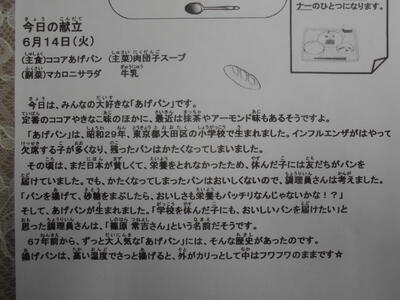 ナーのひとつになります。
今日の献立
6月14日(火)
(主食)ココアあげパン (主菜)肉団子スープ
(副菜)マカロニサラダ 牛乳
今日は、みんなの大好きな「あげパン」です。
定番のココアやきなこ味のほかに、最近は抹茶やアーモンド味もあるそうですよ。
「あげパン」は、昭和29年、東京都大田区の小学校で生まれました。インフルエンザがはやって
欠席する子が多くなり、残ったパンはかたくなってしまいました。
その頃は、まだ日本が貧しくて、栄養をとれなかったため、休んだ子には友だちがパンを
届けていました。でも、かたくなってしまったパンはおいしくないので、調理員さんは考えました。
「パンを揚げて、砂糖をまぶしたら、おいしさも栄養もバッチリなんじゃないかな!?」
そして、あげパンが生まれました。「学校を休んだ子にも、おいしいパンを届けたい」と
思った調理員さんは、「篠原 常吉さん」という名前だそうです。
67年前から、ずっと大人気な「あげパン」には、そんな歴史があったのです。
揚げパンは、高い温度でさっと揚げると、外がカリッとして中はフワフワのままです☆